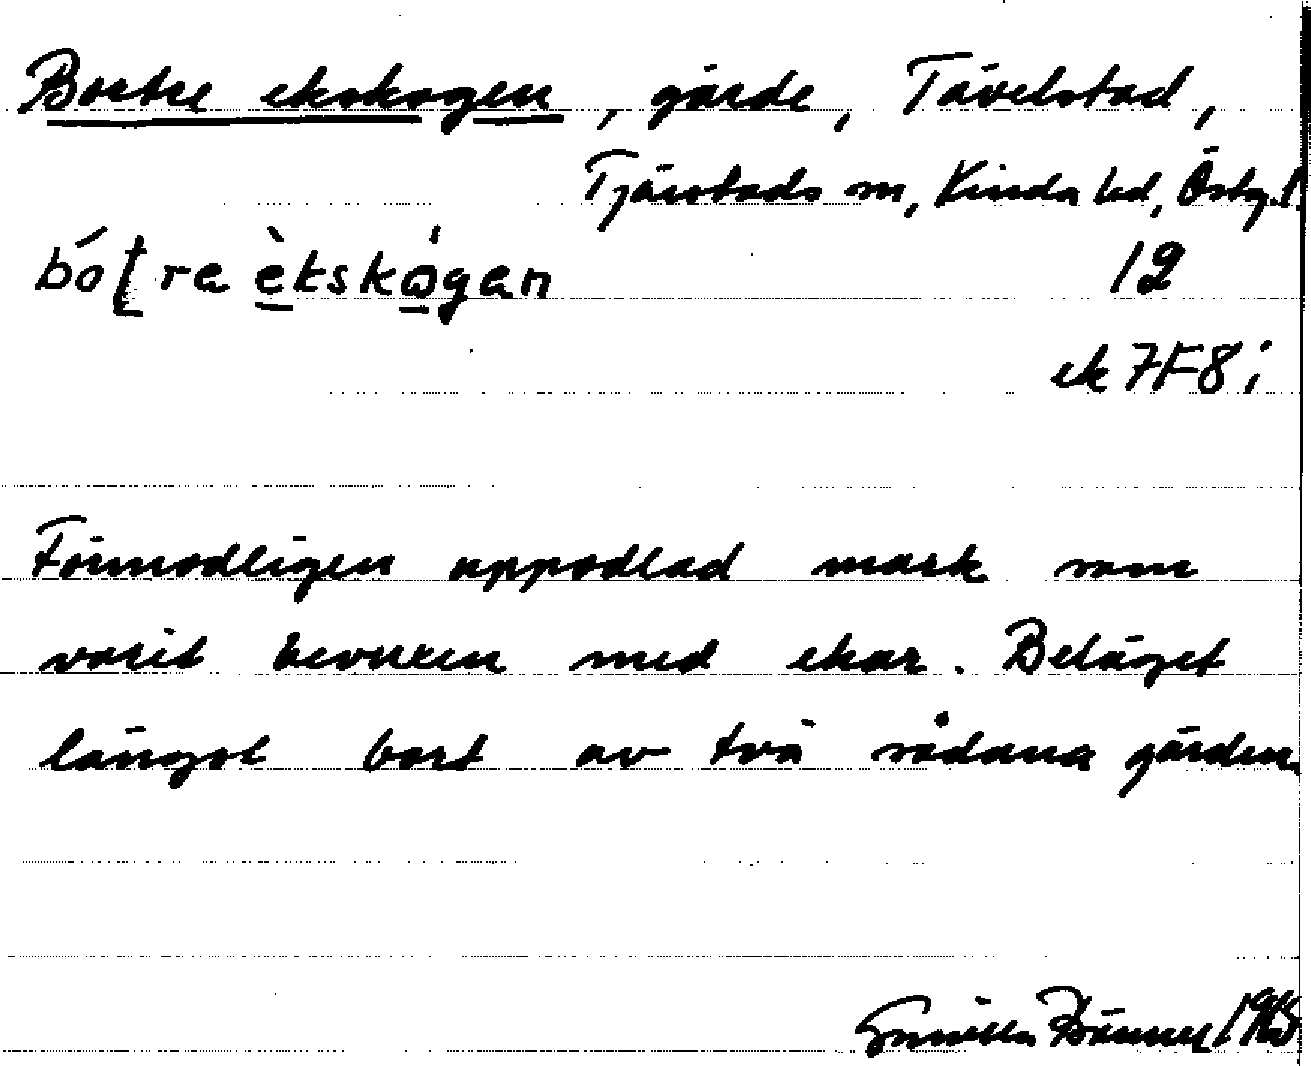 Bortre ekskogen, gärde, Tävelstad,
Tjärstads sn, Kinda hd, Östg.l.
bótra èkskógan 12
ek 7F8i
Förmodligen uppodlad mark som
varit bevuxen med ekar. Beläget
längst bort av två sådana gärden.
Gunilla 1965